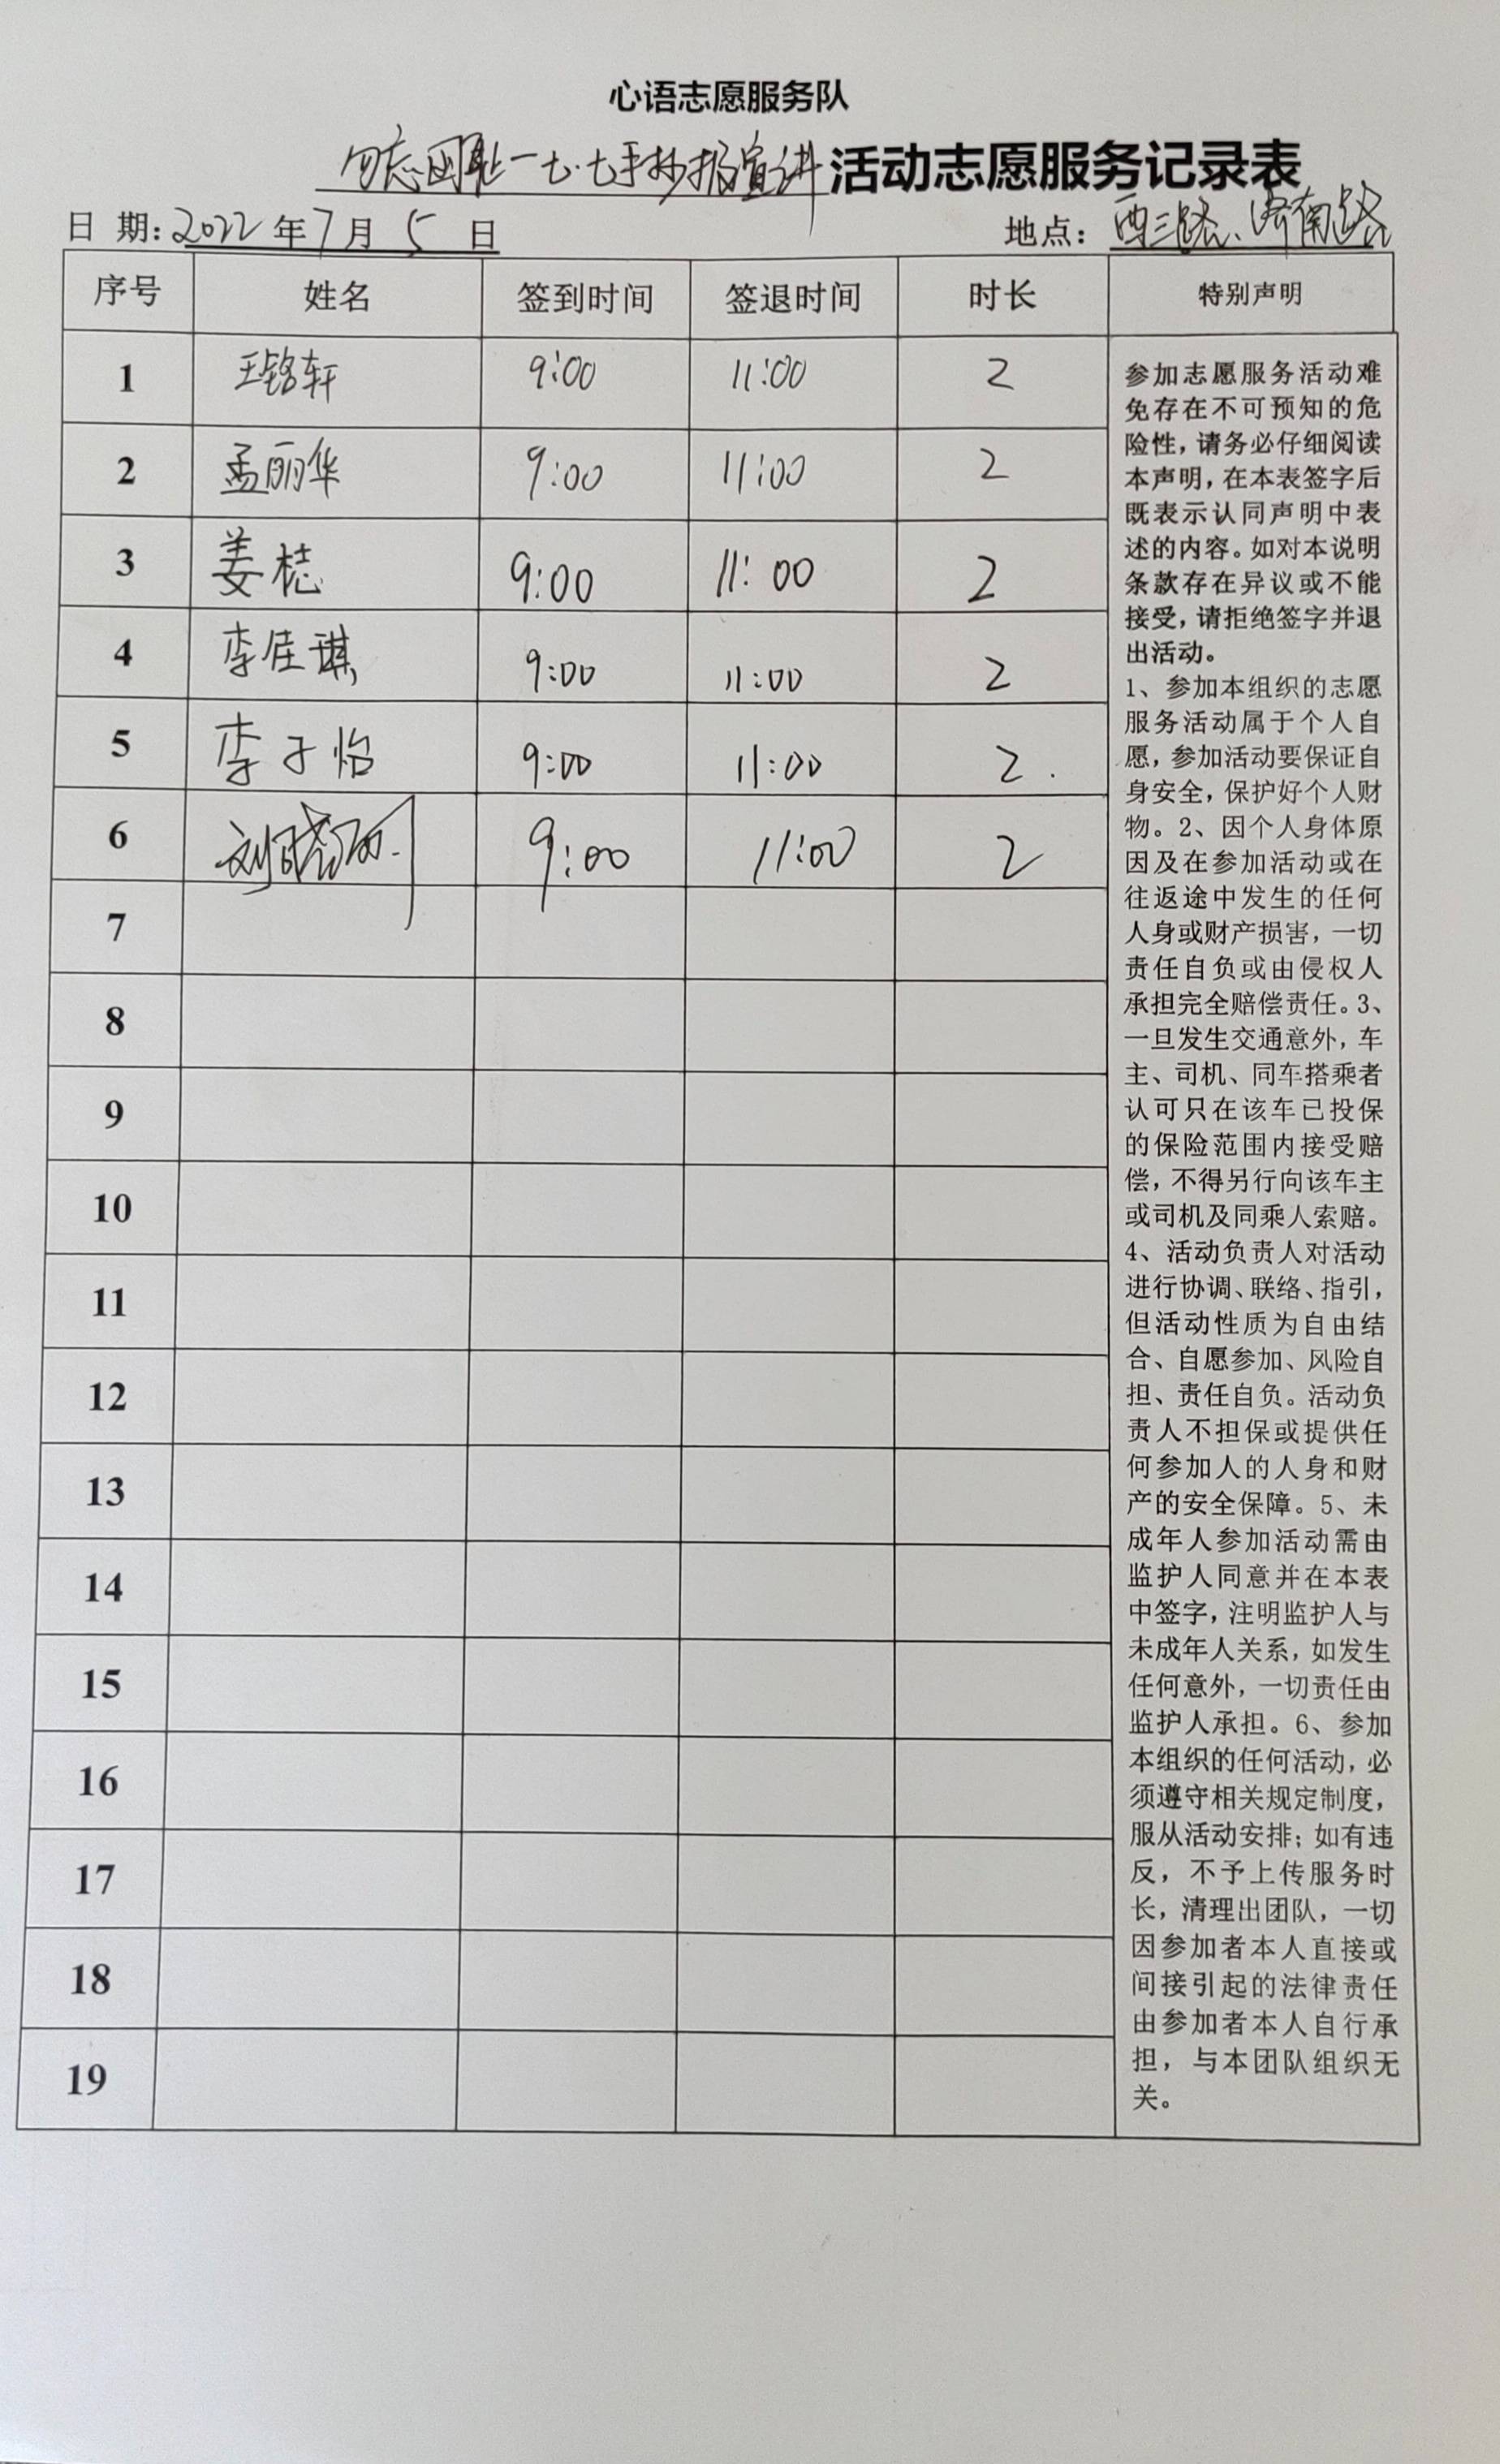 心语志愿服务队
勿忘国耻一七·七手抄报宣讲活动志愿服务记录表
日 期：2022年7月5日 地点：西三路、济南路
序号 姓名 签到时间 签退时间 时长 特别声明
1 王铭轩 9:00 11:00 2
2 孟丽华 9:00 11:00 2
3 姜梽 9:00 11:00 2
4 李佳琪 9:00 11:00 2
5 李子怡 9:00 11:00 2
6 9:00 11:00 2
7
8
9
10
11
12
13
14
15
16
17
18
19
参加志愿服务活动难
免存在不可预知的危
险性，请务必仔细阅读
本声明，在本表签字后
既表示认同声明中表
述的内容。如对本说明
条款存在异议或不能
接受，请拒绝签字并退
出活动。
1、参加本组织的志愿
服务活动属于个人自
愿，参加活动要保证自
身安全，保护好个人财
物。2、因个人身体原
因及在参加活动或在
往返途中发生的任何
人身或财产损害，一切
责任自负或由侵权人
承担完全赔偿责任。3、
一旦发生交通意外，车
主、司机、同车搭乘者
认可只在该车已投保
的保险范围内接受赔
偿，不得另行向该车主
或司机及同乘人索赔。
4、活动负责人对活动
进行协调、联络、指引，
但活动性质为自由结
合、自愿参加、风险自
担、责任自负。活动负
责人不担保或提供任
何参加人的人身和财
产的安全保障。5、未
成年人参加活动需由
监护人同意并在本表
中签字，注明监护人与
未成年人关系，如发生
任何意外，一切责任由
监护人承担。6、参加
本组织的任何活动，必
须遵守相关规定制度，
服从活动安排；如有违
反，不予上传服务时
长，清理出团队，一切
因参加者本人直接或
间接引起的法律责任
由参加者本人自行承
担，与本团队组织无
关。